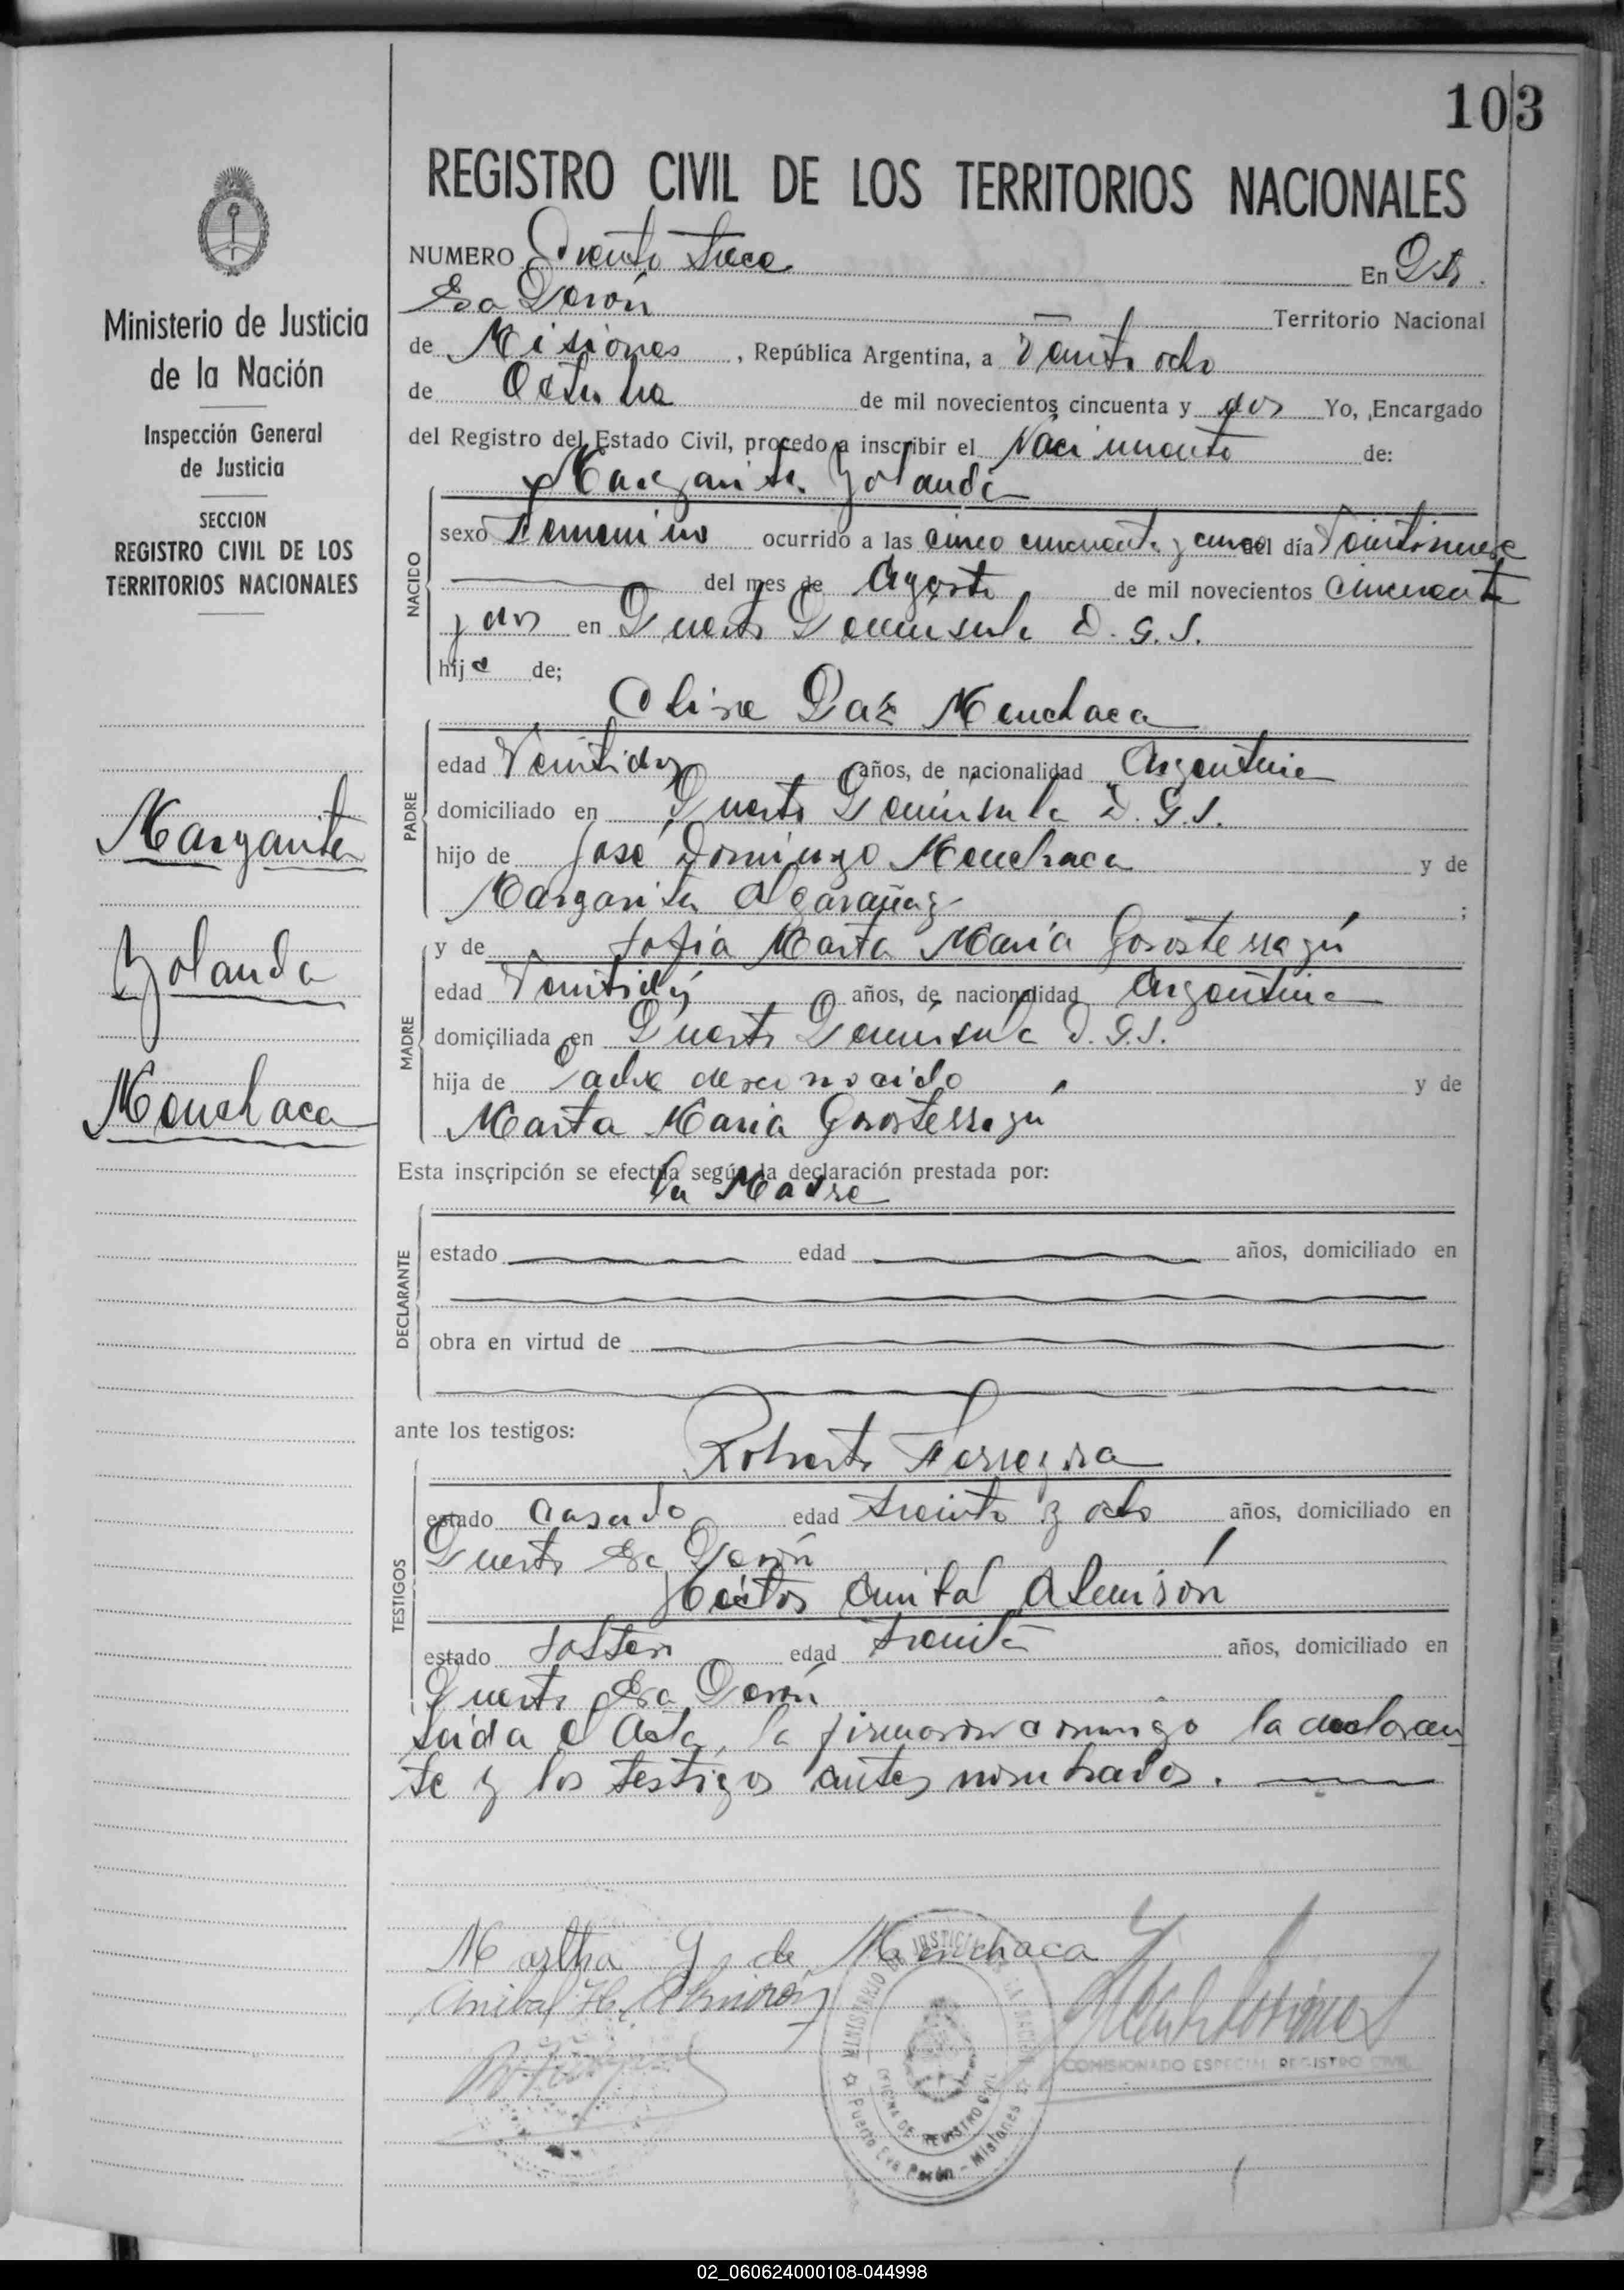 103
REGISTRO CIVIL DE LOS TERRITORIOS NACIONALES
NUMERO Ciento trece En Pto.
Eva Perón Territorio Nacional
de Misiones, República Argentina, a Veintiocho
de Octubre de mil novecientos cincuenta y dos Yo, Encargado
del Registro del Estado Civil, procedo a inscribir el Nacimiento de:
Margarita Yolanda
NACIDO
sexo Femenino ocurrido a las cinco cincuenta y cinco del día Veintinueve
del mes de Agosto de mil novecientos cincuenta
y dos en Puerto Peninsula D. G. S.
hija de;
PADRE
Paz Menchaca
edad Veintidos años, de nacionalidad Argentina
domiciliado en Puerto Peninsula D. G. S.
hijo de José Domingo Menchaca y de
Margarita Algarañaz;
MADRE
y de Sofía Marta María Gorosterrazú
edad Veintidós años, de nacionalidad Argentina
domiciliada en Puerto Peninsula D. G. S.
hija de Padre desconocido y de
Marta Maria Gorosterrazú
Esta inscripción se efectúa según la declaración prestada por:
la Madre
DECLARANTE
estado edad años, domiciliado en
obra en virtud de
ante los testigos:
TESTIGOS
Roberto Ferreyra
estado casado edad treinta y ocho años, domiciliado en
Puerto Eva Perón
Hector Anibal Almirón
estado soltero edad treinta años, domiciliado en
Puerto Eva Perón
Leida el Acta, la firmaron conmigo la declaran
te y los testigos antes nombrados.
Martha G. de Menchaca
Anibal H. Almirón
COMISIONADO ESPECIAL REGISTRO CIVIL
MINISTERIO DE JUSTICIA DE LA NACION
OFICINA DE REGISTRO CIVIL
Puerto Eva Perón - Misiones
Ministerio de Justicia
de la Nación
Inspección General
de Justicia
SECCION
REGISTRO CIVIL DE LOS
TERRITORIOS NACIONALES
Margarita
Yolanda
Menchaca
02_060624000108-044998